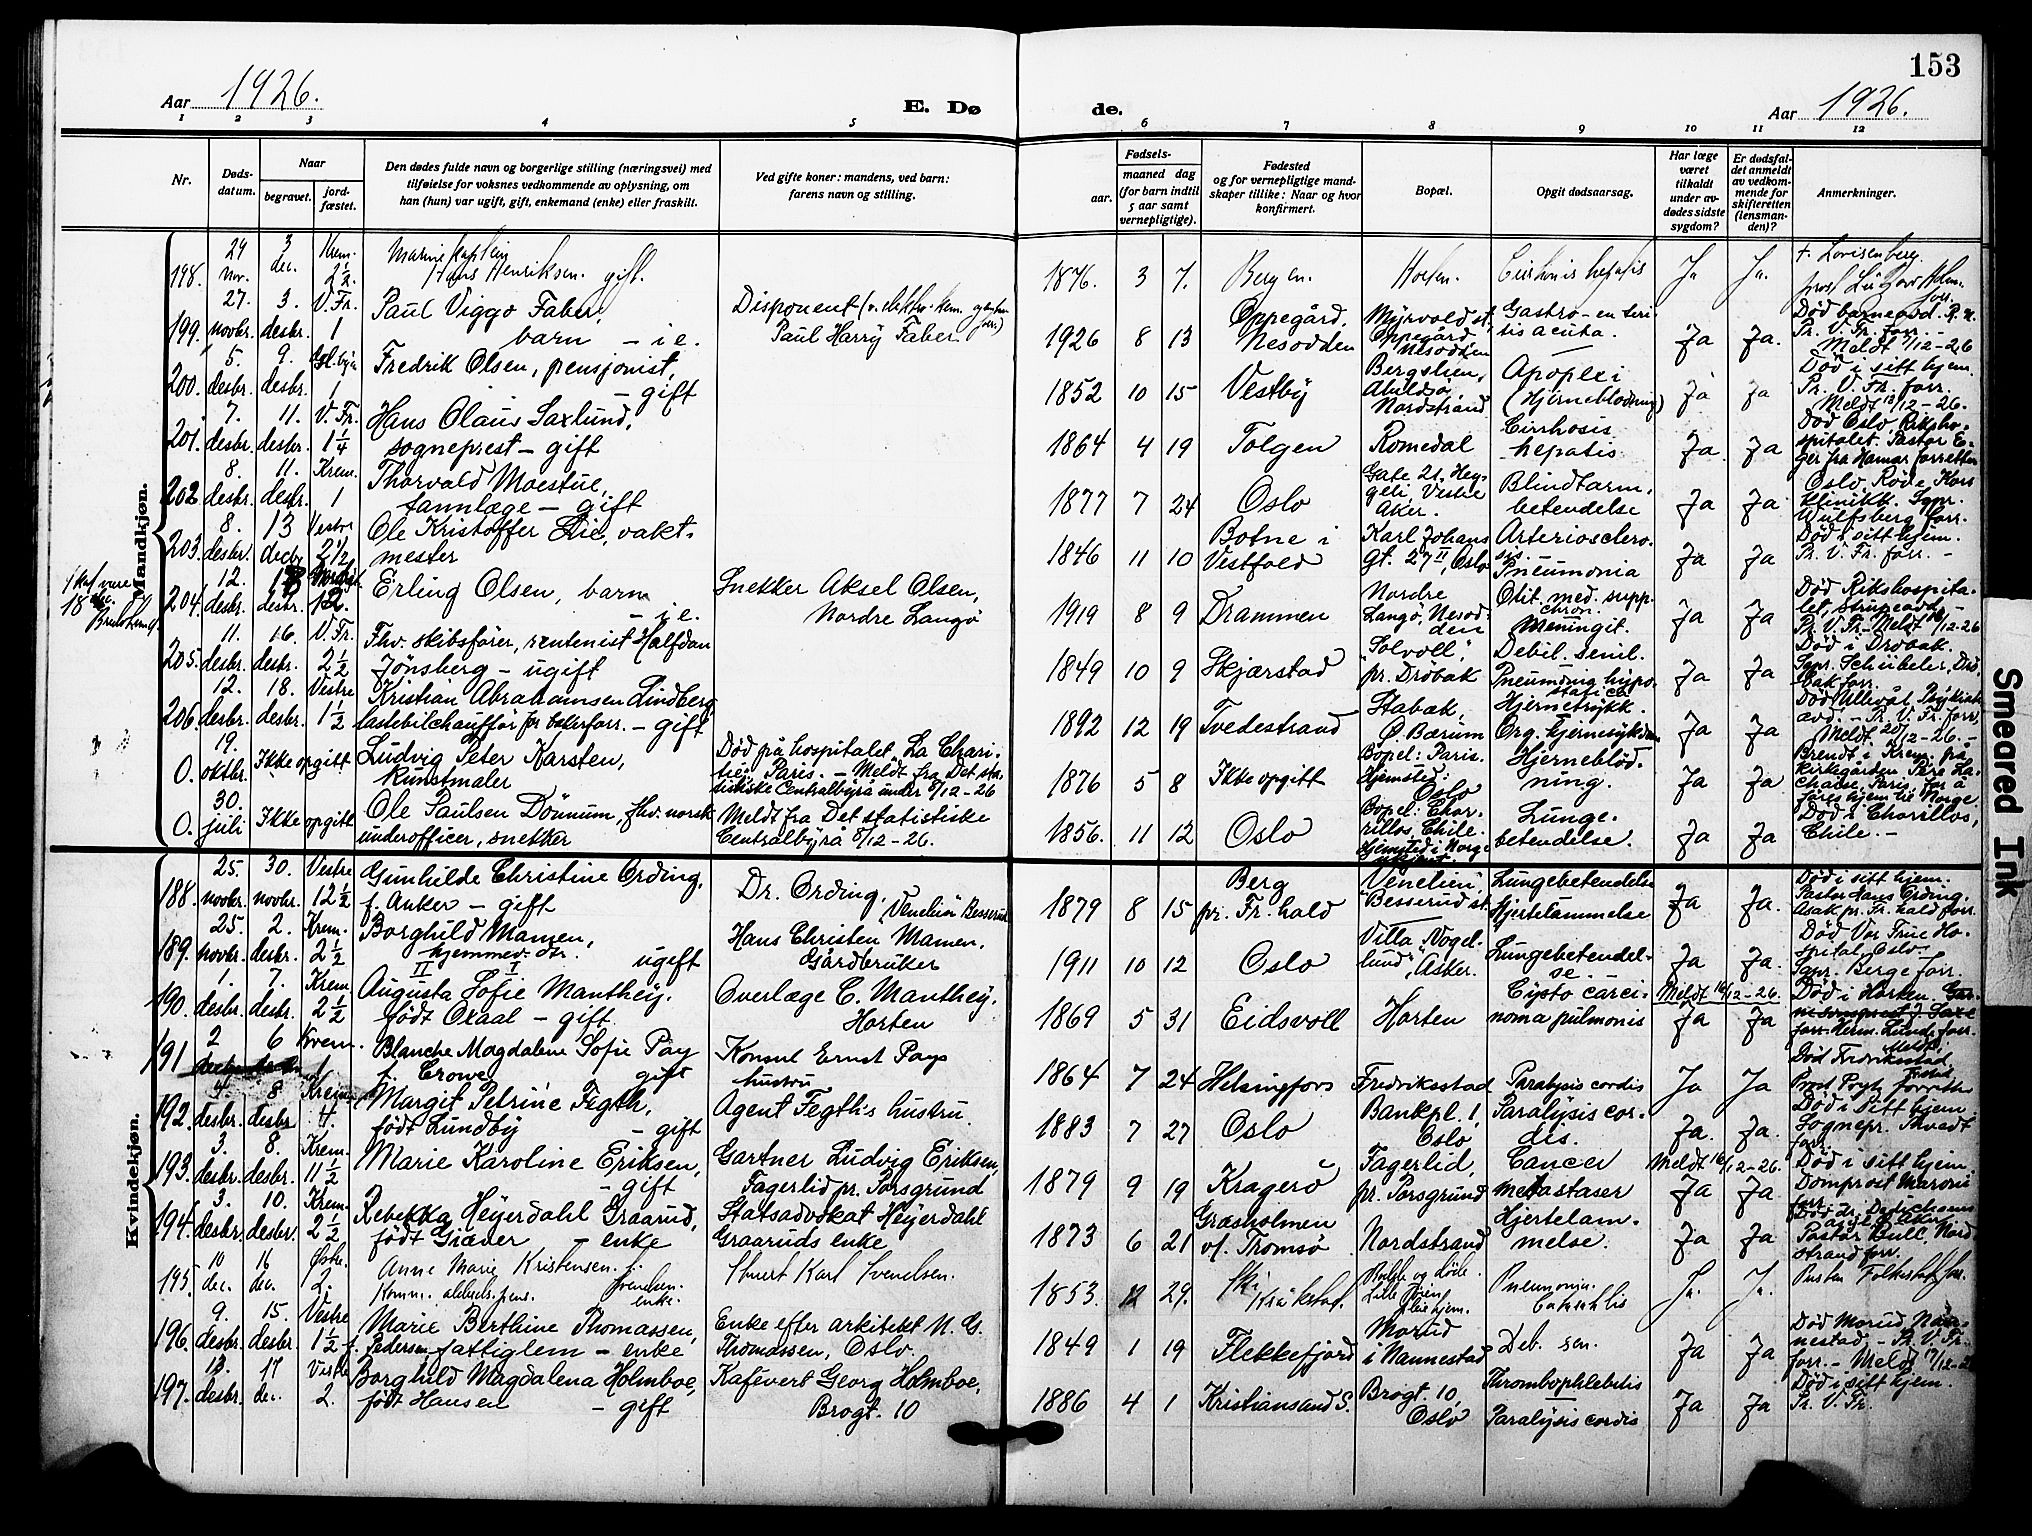 153
Aar 1926.
E. Dø de.
Aar 1926.
1 2 3 4 5 6 7 8 9 10 11 12
Nr.
Døds-
datum.
Naar
begravet.
jord-
fæstet.
Den dødes fulde navn og borgerlige stilling (næringsvei) med
tilføielse for voksnes vedkommende av oplysning, om
han (hun) var ugift, gift, enkemand (enke) eller fraskilt.
Ved gifte koner: mandens, ved barn:
farens navn og stilling.
Fødsels-
aar.
maaned dag
(for barn indtil
5 aar samt
vernepligtige).
Fødested
og for vernepligtige mand-
skaper tillike: Naar og hvor
konfirmert.
Bopæl.
Opgit dødsaarsag.
Har læge
været
tilkaldt
under av-
dødes sidste
sygdom?
Er dødsfal-
det anmeldt
av vedkom-
mende for
skifteretten
(lensman-
den)?
Anmerkninger.
Mandkjøn.
198. 29 nov. 3 dec. Krem. 2½ Marinekaptein
Hans Henriksen. gift. 1876. 3 7. Bergen. Horten. Cirrhosis hepatis Ja Ja. † Lovisenberg.
199. 27. novbr. 3. desbr. V. Fr. 1 Paul Viggo Faber,
barn — i e. Disponent
Paul Harry Faber. 1926 8 13 Oppegård,
Nesodden Myrvold st.
Oppegård
Nesodden Gastro-enteri-
tis acuta. Ja Ja. Død barneavd. R. H.
Pr. V. Fr. forr. —
Meldt 11/12-26
200. 5. desbr. 9. desbr. 1 Fredrik Olsen, pensjonist,
— gift 1852 10 15 Vestby Bergslien,
Abildsø,
Nordstrand Apoplexi
(Hjerneblødning) Ja Ja Død i sitt hjem.
Pr. V. Fr. forr.
Meldt 13/12-26.
201. 7. desbr. 11. desbr. V. Fr. 1¼ Hans Olaus Saxlund,
sogneprest — gift 1864 4 19 Tolgen Romedal Cirrhosis
hepatis Ja. Ja Død Oslo, Riksho-
spitalet. Pastor E-
ger fra Hamar forrettet
202. 8. desbr. 11. desbr. Krem. 1 Thorvald Moestue,
tannlæge — gift 1877 7 24 Oslo Gate 21, Heg-
geli, Vestre
Aker. Blindtarm-
betendelse Ja Ja Oslo, Røde Kors
Klinikk. Sgpr.
Wulfsberg forr.
203. 8. desbr. 13 decbr. Vestre 2½ Ole Kristoffer Lie, vakt-
mester 1846 11 10 Botne i
Vestfold Karl Johans
gt. 27 II, Oslo Arterioschero-
sis.
Pneumonia Ja Ja Død i sitt hjem.
Pr. V. Fr. forr. —
skal være
18 dec.
204. 12. desbr. 18 desbr. 12. Erling Olsen, barn
— i e. Snekker Aksel Olsen,
Nordre Langø 1919 8 9 Drammen Nordre
Langø, Nesod-
den Otit. med. supp.
chron.
Meningit. Ja Ja Død Rikshospita-
let, strupeavd. —
Pr. V. Fr. Meldt 16/12-26
205. 11. desbr. 16. desbr. V. Fr. 2½ Fhv. skibsfører, rentenist Halfdan
Jønsberg — ugift 1849 10 9 Skjærstad "Solvoll",
pr. Drøbak Debil. senil.
Pneumonia hypo-
statica Ja Ja Død i Drøbak.
Sgpr. Schübeler, Drø-
bak forr.
206. 12. desbr. 18. desbr. Vestre 1½ Kristian Abrahamsen Lindberg,
lastebilchauffør for bakerforr. — gift 1892 12 19 Tvedestrand Stabæk,
Ø. Bærum Hjernetrykk.
Org. hjernesykdom Ja Ja Død Ullevål, Psykiatr.
avd. — Pr. V. Fr. forr.
Meldt 20/12-26. —
0. 19. oktbr. Ikke opgitt Ludvig Peter Karsten,
kunstmaler Død på hospitalet, La Chari-
tié, Paris. — Meldt fra Det sta-
tistiske Centralbyrå under 8/12-26 1876 5 8 Ikke opgitt Bopel: Paris.
Hjemsted:
Oslo Hjerneblød-
ning. Ja Ja Brendt i Krem. på
kirkegården Père La-
chaise, Paris, for å
føres hjem til Norge.
0. 30. juli Ikke opgitt Ole Paulsen Dönnum, fhv. norsk
underofficer, snekker Meldt fra Det statistiske
Centralbyrå 8/12-26. 1856. 11 12 Oslo Bopel: Char-
rillos, Chile.
Hjemsted i Norge
ukjent Lunge-
betendelse. Ja Ja Død i Charillos,
Chile. —
Kvindekjøn.
188. 25. novbr. 30. novbr. Vestre 12½ Gunhilde Christine Ording,
f. Anker — gift Dr. Ording,
"Venelien" Besserud 1879 8 15 Berg
pr. Fr. hald "Venelien",
Besserud st. Lungebetendelse
Hjertelammelse Ja Ja. Død i sitt hjem.
Pastor Hans Ording,
Asak pr. Fr. hald forr.
189. 25. novbr. 2. desbr. Krem. 2½ Borghild Mamen,
hjemmev. dtr. ugift Hans Christen Mamen,
Gårdbruker 1911 10 12 Oslo Villa "Nogel-
lund", Asker. Lungebetendel-
se. Ja Ja. Død Vor Frue Ho-
spital, Oslo.
Sgpr. Berge forr.
190. 1. desbr. 7. desbr. Krem. 2½ II I
Augusta Sofie Manthey,
født Oxaal — gift. Overlæge C. Manthey,
Horten 1869 5 31 Eidsvoll Horten Cysto carci-
noma pulmonis Meldt 16/12-26.
Ja Ja Død i Horten.
forr. Herm. Lunde forr.
191 2 6 Krem. Blanche Magdalene Sofie Pay
f. Crowe gift Konsul Ernst Pays
hustru 1864 7 24 Helsingfors Fredriksstad Paralysis cordis Ja Ja Død Fredriksstad
192. 4. desbr. 8 desbr. Krem. 4. Margit Petrine Fegth,
født Lundby — gift Agent Fegth's hustru 1883 7 27 Oslo Bankpl. 1,
Oslo Paralysis cor-
dis. Ja. Ja. Død i sitt hjem
Sognepr. Kvadt
forr.
193. 3. desbr. 8. desbr. Krem. 11½ Marie Karoline Eriksen,
— gift Gartner Ludvig Eriksen,
Fagerlid pr. Porsgrund 1879 9 19 Kragerø Fagerlid,
pr. Porsgrund Cancer
metastaser Meldt 16/12-26.
Ja Ja Død i sitt hjem.
Domprost Maroni
forr.
194. 3. desbr. 10. desbr. Krem. 2½ Rebekka Heyerdahl Graarud,
født Giæver — enke Statsadvokat Heyerdahl
Graaruds enke 1873 6 21 Græsholmen
v/ Tromsø Nordstrand Hjertelam-
melse. Ja Ja
Pastor Bull, Nord-
strand forr.
195. 10 dec. 16 dec. Østre 2. Anne Marie Kristensen f.
Svendsen. enke. Karl Svendsen. 1853. 12 29. Ski
Kråkstad. Pneumonia. Ja. Ja.
196. 9. desbr. 15. desbr. Vestre 1½ Marie Berthine Thomassen,
f. Pedersen fattiglem — enke Enke efter arkitekt M. G.
Thomassen, Oslo. 1849 1 19 Flekkefjord Morud
i Nannestad Deb. sen. Ja Ja Død Morud, Nan-
nestad. — Pr. V. Fr.
forr. — Meldt 17/12-26
197. 13. desbr. 17 dec. Vestre 2. Borghild Magdalena Holmboe,
født Hansen — gift Kafévert Georg Holmboe,
Brogt. 10 1886 4 1 Kristiansand S. Brogt. 10,
Oslo Thrombophlebitis
Paralysis cordis Ja Ja Død i sitt hjem.
Pr. V. Fr.
Smeared Ink